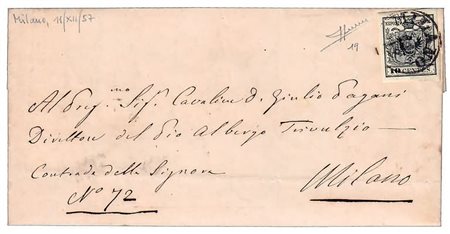 Milano, 11/XII/57
19
10 CENTES
Al Preg.mo Sig. Cavaliere D. Giulio Pagani
Direttore del Pio Albergo Trivulzio —
Contrada della Signora
N.o 72
Milano